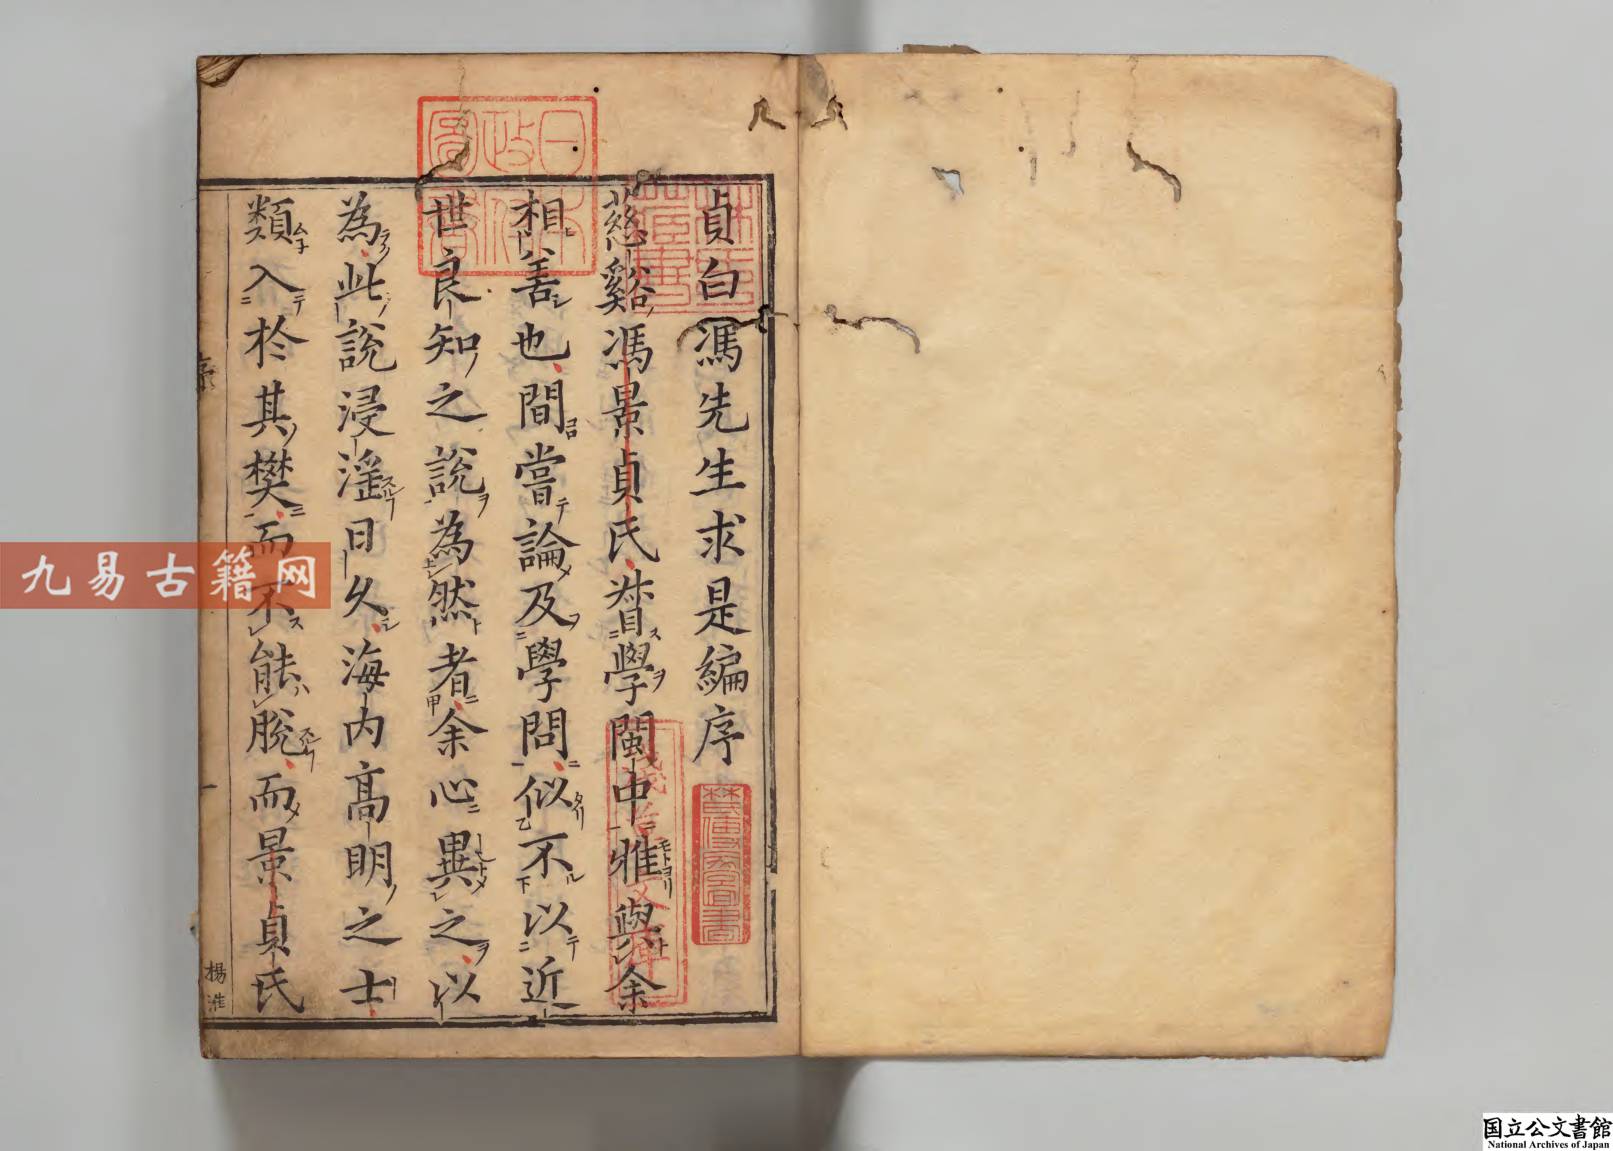 貞白馮先生求是編序
慈谿馮景貞氏督學閩中雅與余
相善也間嘗論及學問似不以近
世良知之說為然者余心異之以
為此說浸滛日久海内髙明之士
類入於其樊而不能脫而景貞氏
序
一
楊淮
日本政府圖書
林氏藏書
淺草文庫
九易古籍网
国立公文書館
National Archives of Japan